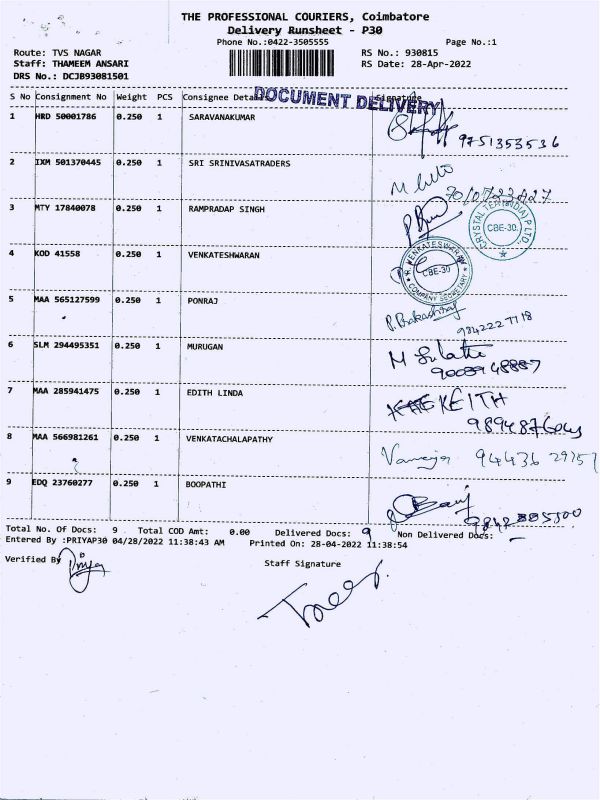 THE PROFESSIONAL COURIERS, Coimbatore
Delivery Runsheet - P30
Phone No.:0422-3505555
Page No.:1
Route: TVS NAGAR
RS No.: 930815
Staff: THAMEEM ANSARI
RS Date: 28-Apr-2022
DRS No.: DCJB93081501
S No Consignment No Weight PCS Consignee Details Signature
DOCUMENT DELIVERY
1 HRD 50001786 0.250 1 SARAVANAKUMAR
9751353536
2 IXM 501370445 0.250 1 SRI SRINIVASATRADERS
3 MTY 17840078 0.250 1 RAMPRADAP SINGH
CBE-30.
4 KOD 41558 0.250 1 VENKATESHWARAN
R. VENKATESWARAN
CBE-30
COMPANY SECRETARY
5 MAA 565127599 0.250 1 PONRAJ
P. Prakashraj
984222 7118
6 SLM 294495351 0.250 1 MURUGAN
7 MAA 285941475 0.250 1 EDITH LINDA
KEITH
8 MAA 566981261 0.250 1 VENKATACHALAPATHY
94436 29757
9 EDQ 23760277 0.250 1 BOOPATHI
Total No. Of Docs: 9 Total COD Amt: 0.00 Delivered Docs: 9 Non Delivered Docs: -
Entered By :PRIYAP30 04/28/2022 11:38:43 AM Printed On: 28-04-2022 11:38:54
Verified By
Staff Signature